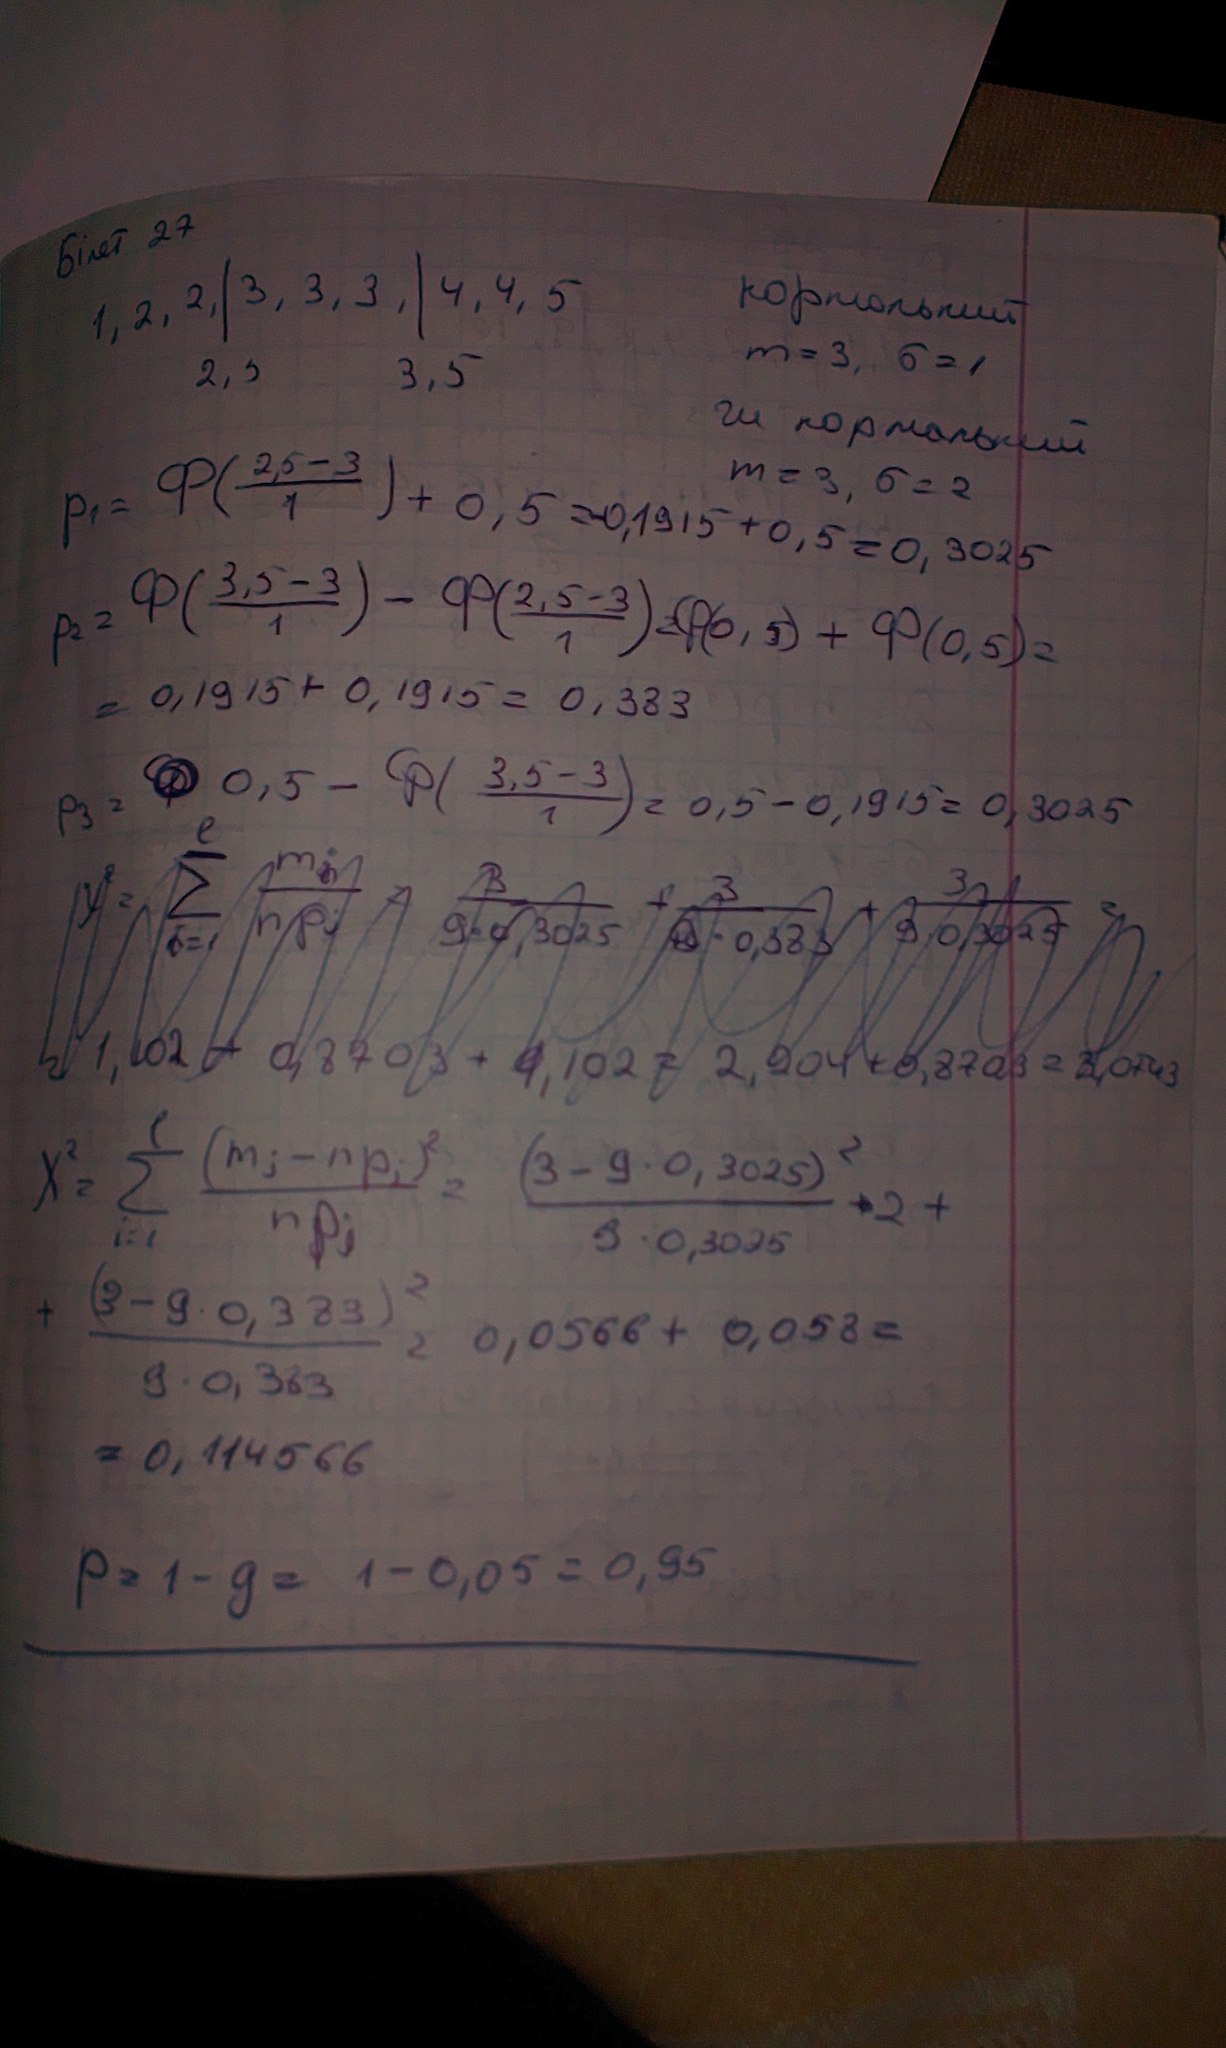 Білет 27
1, 2, 2, | 3, 3, 3, | 4, 4, 5
2,5 3,5
нормальний
m = 3, σ = 1
чи нормальний
m = 3, σ = 2
p₁ = Ф((2,5 - 3)/1) + 0,5 = -0,1915 + 0,5 = 0,3025
p₂ = Ф((3,5 - 3)/1) - Ф((2,5 - 3)/1) = Ф(0,5) + Ф(0,5) =
= 0,1915 + 0,1915 = 0,383
p₃ = 0,5 - Ф((3,5 - 3)/1) = 0,5 - 0,1915 = 0,3025
= 1,102 + 0,8703 + 1,102 = 2,204 + 0,8703 =
χ² = Σ_{i=1}^{l} (mⱼ - npⱼ)²/npⱼ = (3 - 9 · 0,3025)²/(9 · 0,3025) · 2 +
+ (3 - 9 · 0,383)²/(9 · 0,383) = 0,0566 + 0,058 =
= 0,114566
p = 1 - g = 1 - 0,05 = 0,95